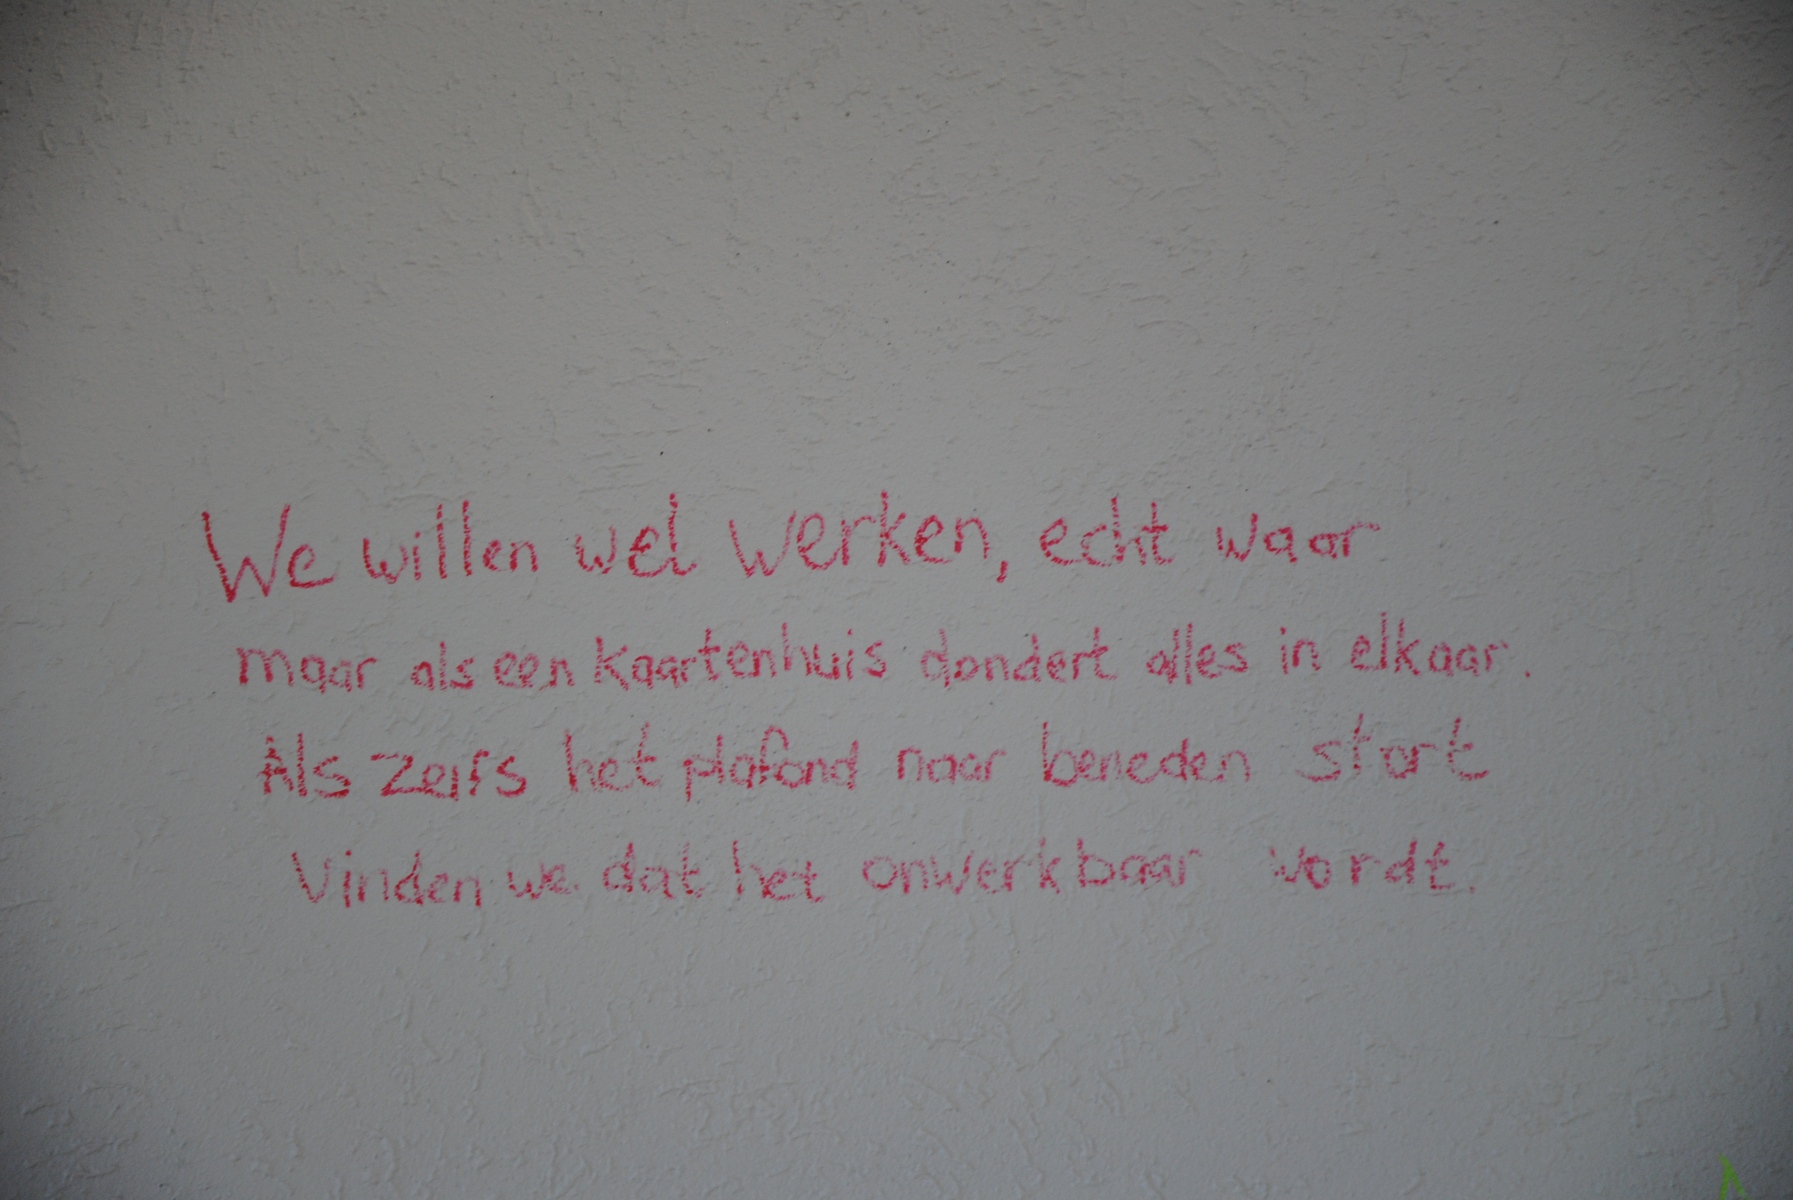 We willen wel werken, echt waar
maar als een kaartenhuis dondert alles in elkaar.
Als zelfs het plafond naar beneden stort
Vinden we dat het onwerkbaar wordt.